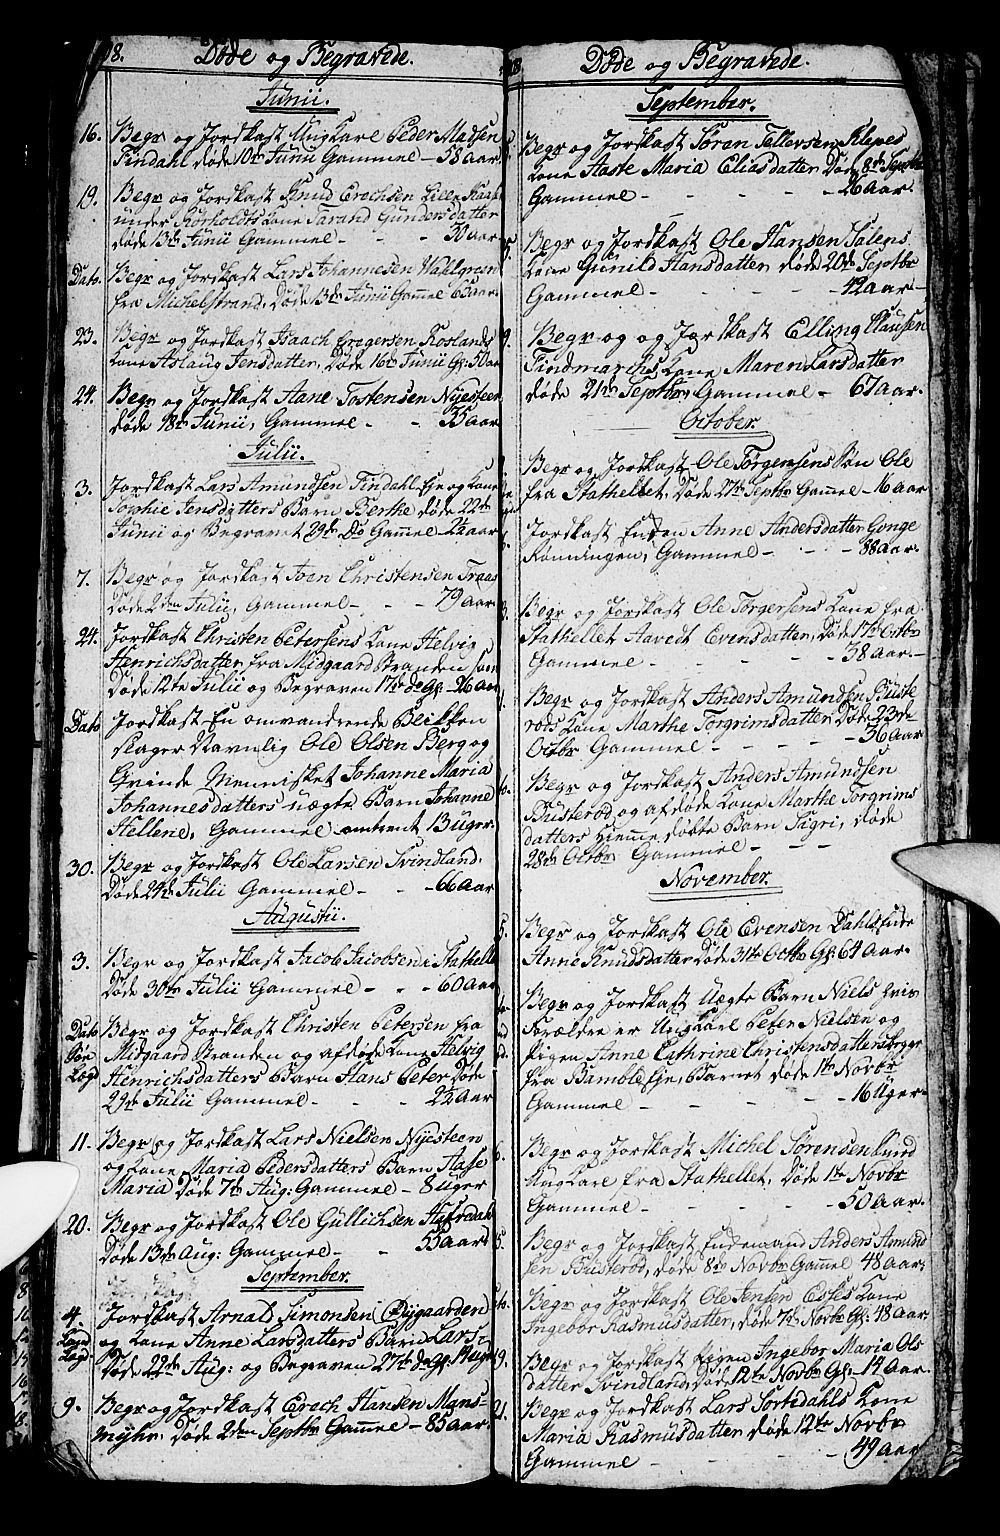 8. Døde og Begravede.
Junii.
16. Begr og Jordkast Ungkarl Peder Madsen
Findahl døde 10de Junii Gammel - 58 aar
19. Begr og Jordkast Knud Erechsen Lille Haaf
under Rørholdts Kone Tarand Gundersdatter
døde 13de Junii Gammel - - - 50 aar
Dato. Begr og Jordkast Lars Johannesen Wahlman
fra Michelstrand, Døde 13de Junii Gamel 65 aar.
23. Begr og Jordkast Isaach Gregersen Roslands
Kone Aslaug Jensdatter, Døde 16de Junii Gl: 50 aar
24. Begr og Jordkast Aane Tostensen Nyesteen
døde 18de Junii, Gammel - - 55 aar
Julii.
3. Jordkast Lars Amundsen Findahl Eje og Kone
Sophie Jensdatters Barn Berthe døde 22de
Junii og Begravet 29de Do Gamel - 2½ aar
7. Begr og Jordkast Joen Christensen Traas
Døde 2den Julii, Gammel - - - 79 aar
24. Jordkast Christen Petersens Kone Helvig
Henrichsdatter fra Midgaard Stranden som
Døde 12te Julii og Begraven 17de do Gl: 26 aar
Dato Jordkast En omvandrende Blikken
slager Navnlig Ole Olsen Berg og
Qvinde Mennisket Johanne Maria
Johannesdatters uægte Barn Johanne
Hellene, Gammel omtrent 13 uger.
30. Begr og Jordkast Ole Larsen Svindland.
Døde 24de Julii Gammel - - 66 aar
Augustii.
3. Begr og Jordkast Jacob Jacobsen i Stathelle
Døde 30te Julii Gammel - - - 60 aar
Dato Begr og Jordkast Christen Petersen fra
Midgaard Stranden og afdøde Kone Helvig
Henrichsdatters Barn Hans Peter Døde
29de Julii Gammel - - - 2½ aar
11. Begr og Jordkast Lars Nielsen Nyesteen
og Kone Maria Pedersdatters Barn Aase
Maria Døde 7de Aug: Gammel - 8 uger
20. Begr og Jordkast Ole Gullichsen Hafsdal
Døde 13de Aug: Gammel - - 55 aar
September.
4. Jordkast Arnal Simonsen (Øygaarden)
og Kone Anne Larsdatters Barn Lars
Døde 22de Aug: og Begraven 27de do Gl: 14 uger
9. Begr og Jordkast Erech Hansen Mans-
myhr. Døde 2den Septbr Gamel - 85 aar.
Døde og Begravede.
September.
Begr og Jordkast Søren Tellevsen Klepes
Kone Aaste Maria Eliasdatter Døde 8de Septbr
Gammel - - - - 26 aar
Begr og Jordkast Ole Hansen Salens
Kone Gunild Hansdatter døde 20de Septbr
Gammel - - - - 42 aar
9. Begr og og Jordkast Elling Clausen
Findmarchs Kone Maren Larsdatter
døde 21de Septbr Gammel - 67 aar.
October.
Begr og Jordkast Ole Torgersens Søn Ole
fra Stathellet. Døde 27de Septbr Gamel - 16 aar
Jordkast Enken Anne Andersdatter Gonge
Rønningen, Gammel - - - 88 aar.
Begr og Jordkast Ole Torgersens Kone fra
Stathellet Aavedt Evensdatter, Døde 17de Octbr
Gammel - - - - 38 aar.
Begr og Jordkast Anders Amundsen Buste
rods Kone Marthe Torgrimsdatter Døde 23de
Octbr Gammel - - - - 36 aar
Begr og Jordkast Anders Amundsen
Busterod og afdøde Kone Marthe Torgrims
datters hieme døbte Barn Sigri, døde
28de Octbr Gammel - - -
November.
5. Begr og Jordkast Ole Evensen Dahls Enke
Anne Knudsdatter Døde 31te Octbr Gl: 64 aar.
Begr og Jordkast Uægte Barn Niels hvis
Forældre er Ungkarl Peter Nielsen og
Pigen Anne Cathrine Christensdatter begge
fra Bamble Eje, Barnet døde 1te Novbr
Gammel - - - - 16 Uger
6. Begr og Jordkast Michel Sørensen Lund
Ungkarl fra Stathellet, Døde 1te Novbr
Gammel - - - - 50 aar.
5. Begr og Jordkast Enkemand Anders Amund
sen Busterod, døde 8de Novbr Gamel 48 aar;
Begr og Jordkast Ole Jensen Esles Kone
Ingebor Rasmusdatter, døde 7de Novbr Gl: 48 aar.
19. Begr og Jordkast Pigen Ingebor Maria Ols
datter Svindland, Døde 12te Novbr Gl: 14 aar.
21. Begr og Jordkast Lars Tortdahls Kone
Maria Rasmusdatter døde 12te Novbr
Gammel - - - - 49 aar